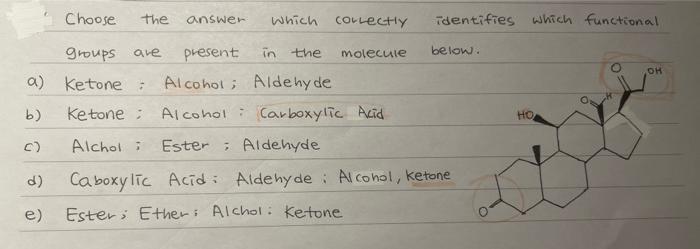 Choose the answer which correctly identifies which functional
groups are present in the molecule below.
a) Ketone ; Alcohol ; Aldehyde
b) Ketone ; Alcohol ; Carboxylic Acid
c) Alchol ; Ester ; Aldehyde
d) Caboxylic Acid ; Aldehyde ; Alcohol, Ketone
e) Ester ; Ether ; Alchol ; Ketone
O
OH
O
H
HO
O